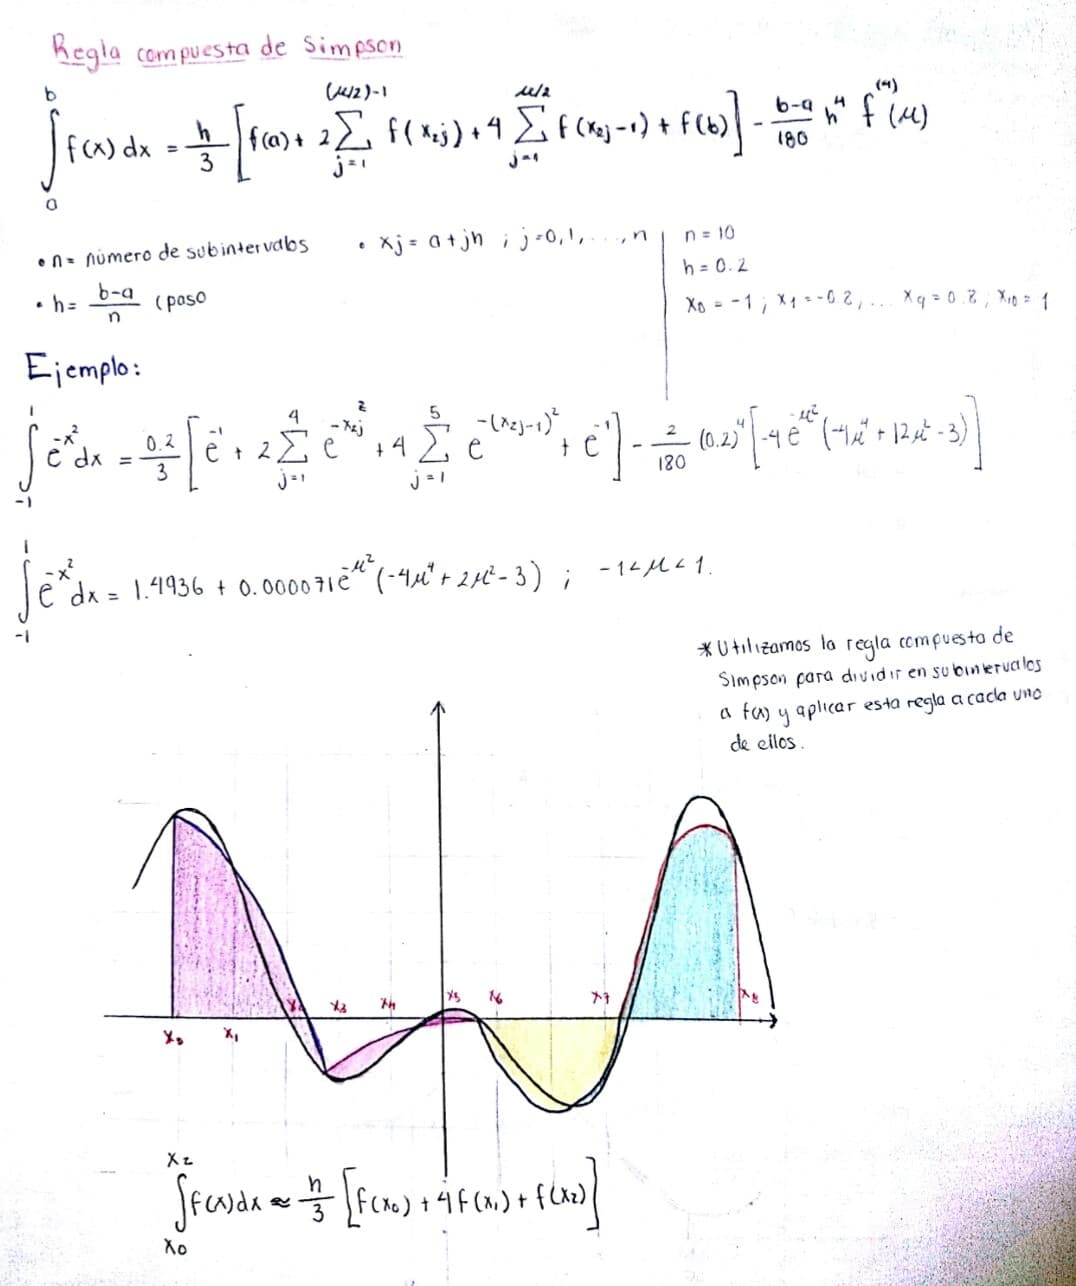 Regla compuesta de Simpson
∫_a^b f(x) dx = h/3 [f(a) + 2 Σ_{j=1}^{(μ/2)-1} f(x_{2j}) + 4 Σ_{j=1}^{μ/2} f(x_{2j}-1) + f(b)] - (b-a)/180 h⁴ f^{(4)}(μ)
• n = número de subintervalos
• xj = a + jh ; j=0,1,...,n
• h = (b-a)/n (paso
n = 10
h = 0.2
x₀ = -1 ; x₁ = -0.8, ... x₉ = 0.8 ; x₁₀ = 1
Ejemplo:
∫_{-1}^{1} e^{-x²} dx = 0.2/3 [e^{-1} + 2 Σ_{j=1}^{4} e^{-x_{2j}^2} + 4 Σ_{j=1}^{5} e^{-(x_{2j}-1)²} + e^{-1}] - 2/180 (0.2)⁴ [-4e^{-μ²} (-4μ⁴ + 12μ² - 3)]
∫_{-1}^{1} e^{-x²} dx = 1.4936 + 0.000071e^{-μ²} (-4μ⁴ + 2μ² - 3) ; -1<μ<1.
* Utilizamos la regla compuesta de
Simpson para dividir en subintervalos
a f(x) y aplicar esta regla a cada uno
de ellos.
x₃ x₄ x₅ x₆ x₇ x₈
x₀ x₁
∫_{x₀}^{x₂} f(x)dx ≈ h/3 [f(x₀) + 4f(x₁) + f(x₂)]